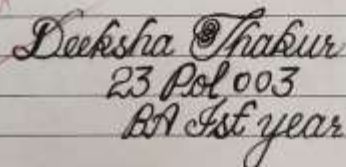 Deeksha Thakur
23 Pol 003
BA Ist year